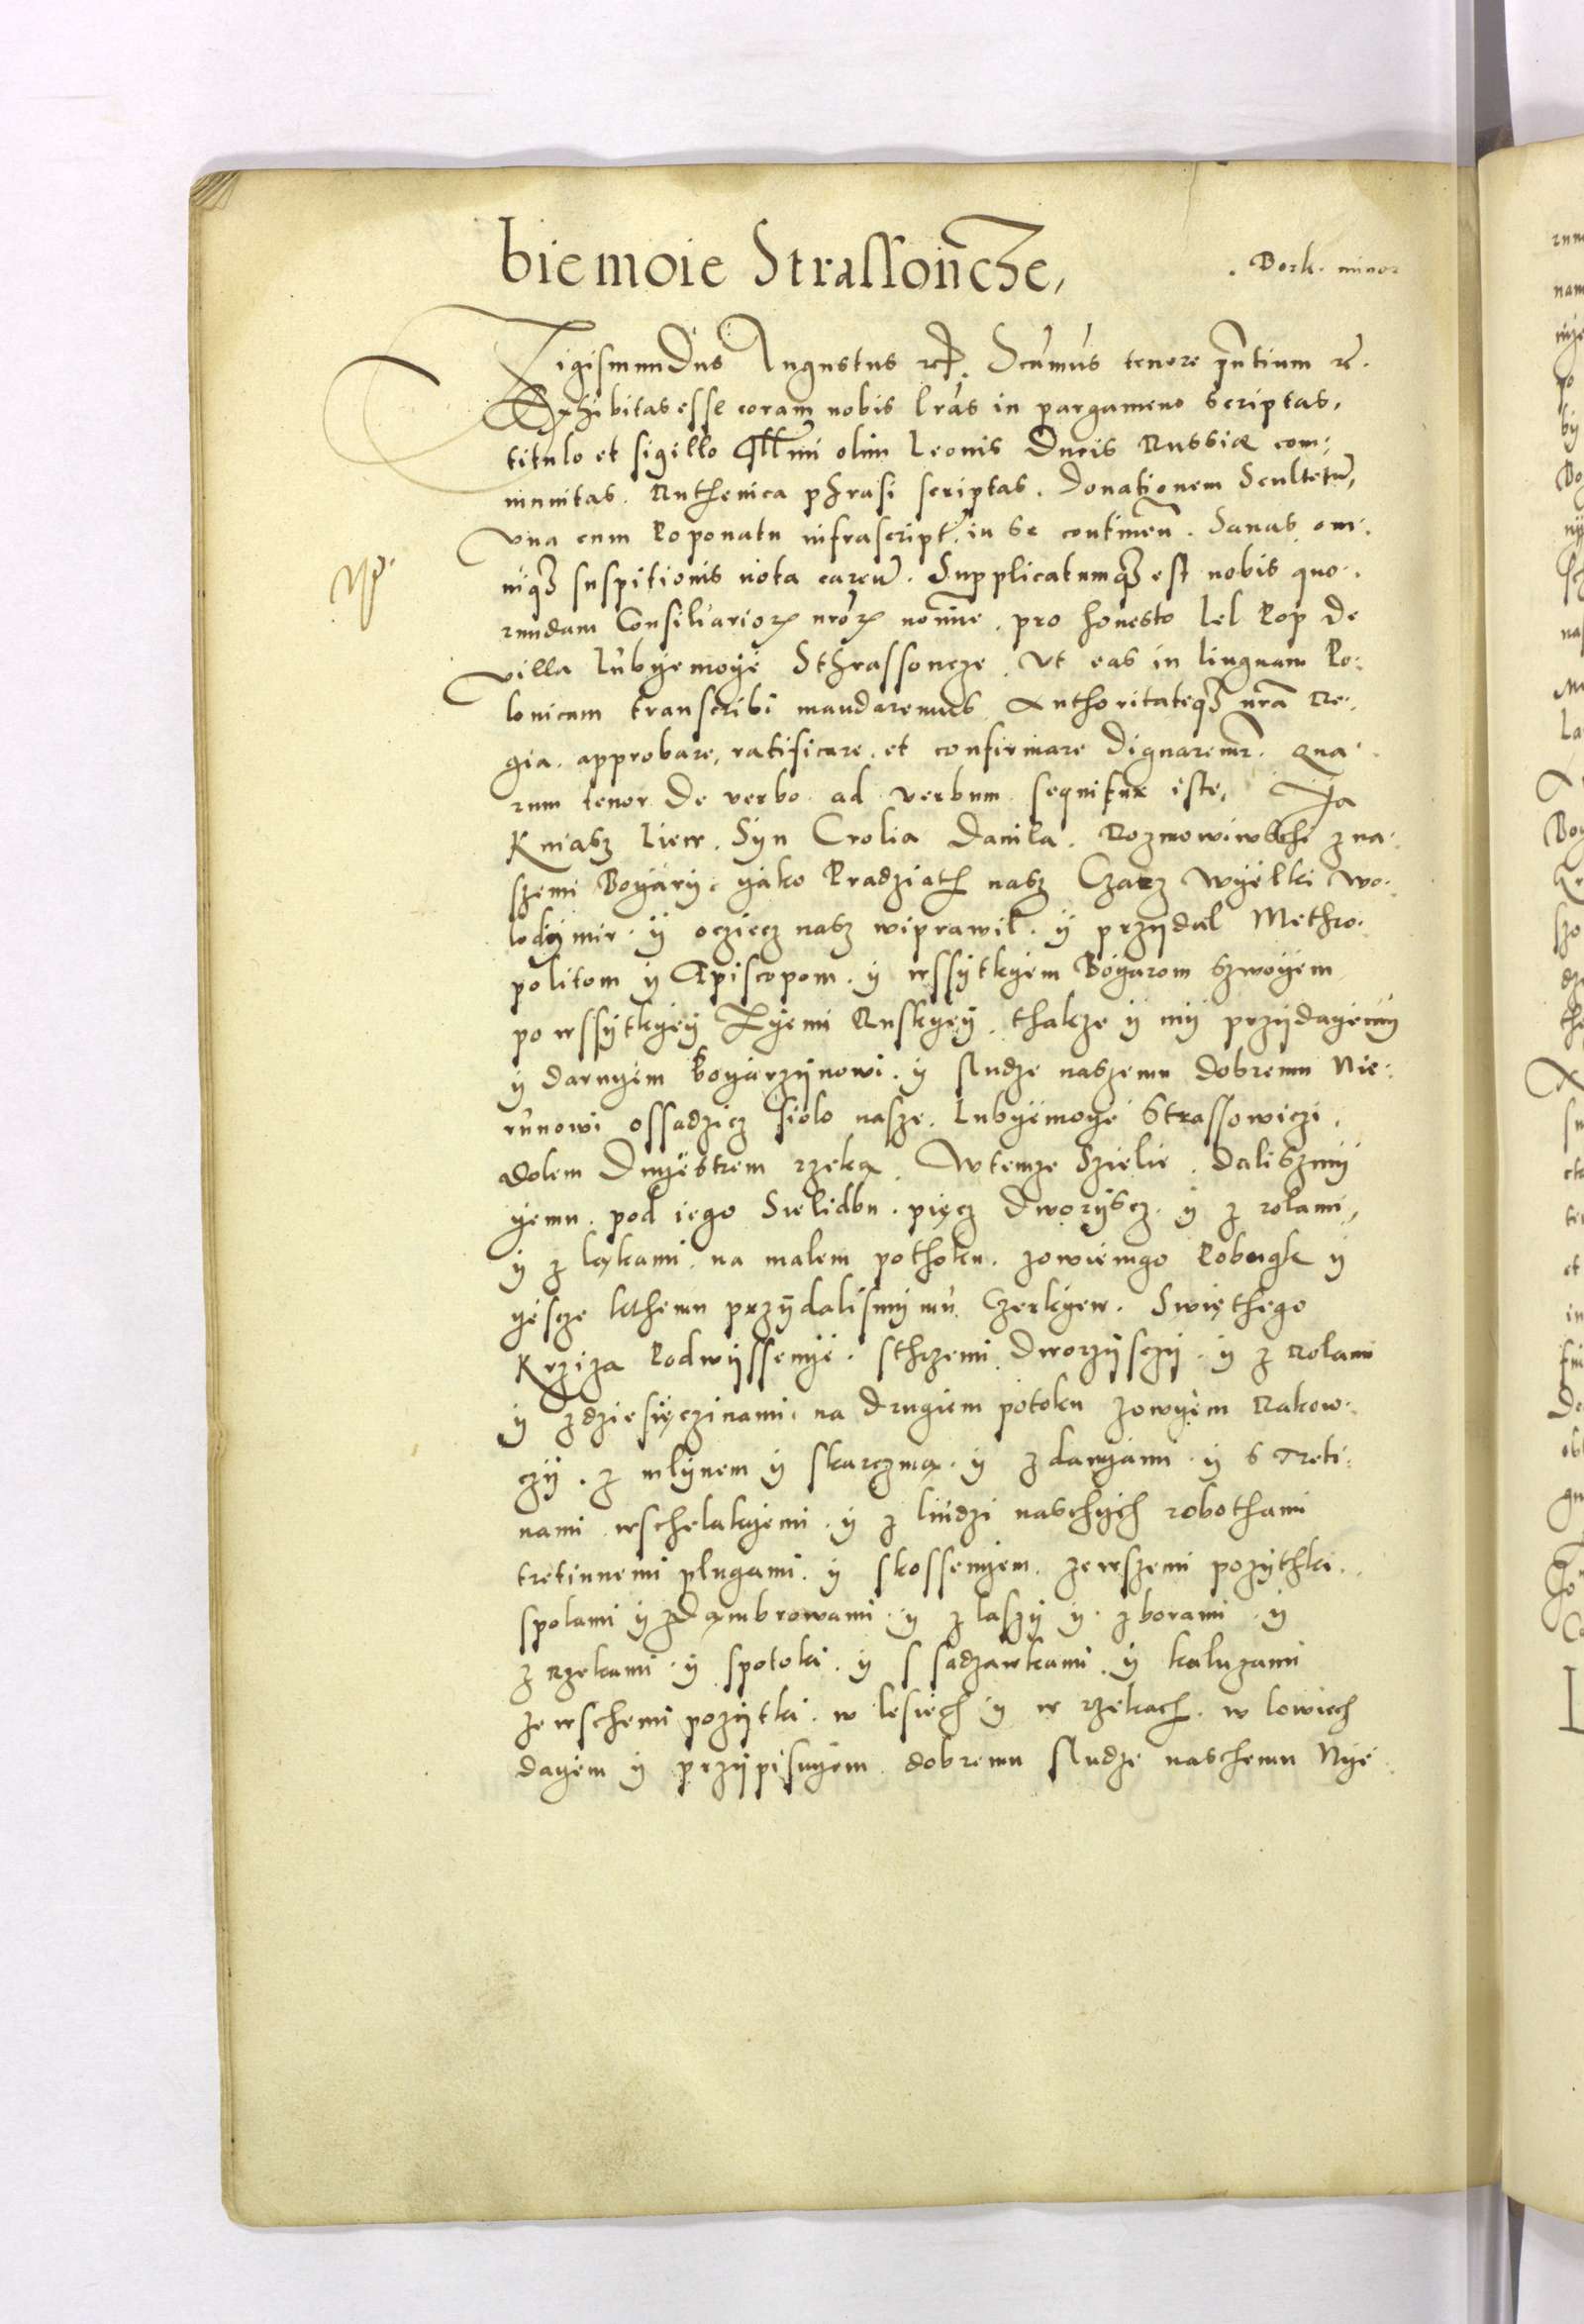 biemoie Strassoncze,
. Derk. minor
Sigismundus Augustus etc. Scumus tenore pntium etc.
Exhibitas esse coram nobis lras in pargameno scriptas,
titulo et sigillo Illmi olim Leonis Ducis Russiæ com:
munitas. Ruthenica phrasi scriptas. Donationem Scultetiæ,
vna cum Poponatu infrascript. in se continen. Sanas om:
niqz suspitionis nota caren. Supplicatumqz est nobis quo:
rundam Consiliarioru nroru nomine, pro honesto Lel Pop de
villa Lubyemoye Sthrassoncze, vt eas in linguam Po:
lonicam transcribi mandaremus Authoritateqz nra Re:
gia. approbare, ratificare, et confirmare dignaremur. Qua:
rum tenor de verbo ad verbum sequitur iste, Ja
Kniasz Liew. Syn Crolia Danila. Rozmowiwschi z na:
szemi Boyary. yako Pradziath nasz Czarz Wyelki Wo:
lodymir. y ocziecz nasz wiprawil. y przydal Methro:
politom y Episcopom. y wssytkyem Boyarom szwoyem
po wssytkyey Zyemi Ruskyey, thakze y my przydayemy
y daruyem boyarzynowi. y sludze naszemu dobremu Nie:
runowi ossadzicz siolo nasze. Lubyemoye Strassowiczi,
dolem Dnyestrem rzeką. W temze Szielie. daliszmy
yemu. pod iego Sielidbu. pięcz Dworyscz. y z rolami,
y z lękami. na malem pothoku. zowiemgo Pobugk y
yescze kthemu przydalismy mu Czerkyew. Swięthego
Krziza Podwyssenye. sthrzemi Dworzysczy. y z Rolami
y z dziesięczinami, na drugiem potoku zowyem Rakow:
czy. z mlynem y skarczmą. y z danyami. y s Treti:
nami wschelakyemi. y z liudzi naschych robothami
tretiunemi plugami. y skossenyem. zewszemi pozythki.
spolami y z dąmbrowami. y z laszy y. z borami. y
z rzekami. y spotoki. y s sadzawkami. y kaluzami
ze wschemi pozytki. w lesiech y w rzekach. w lowiech
dayem y przypisuyem dobremu sludze naschemu Nye